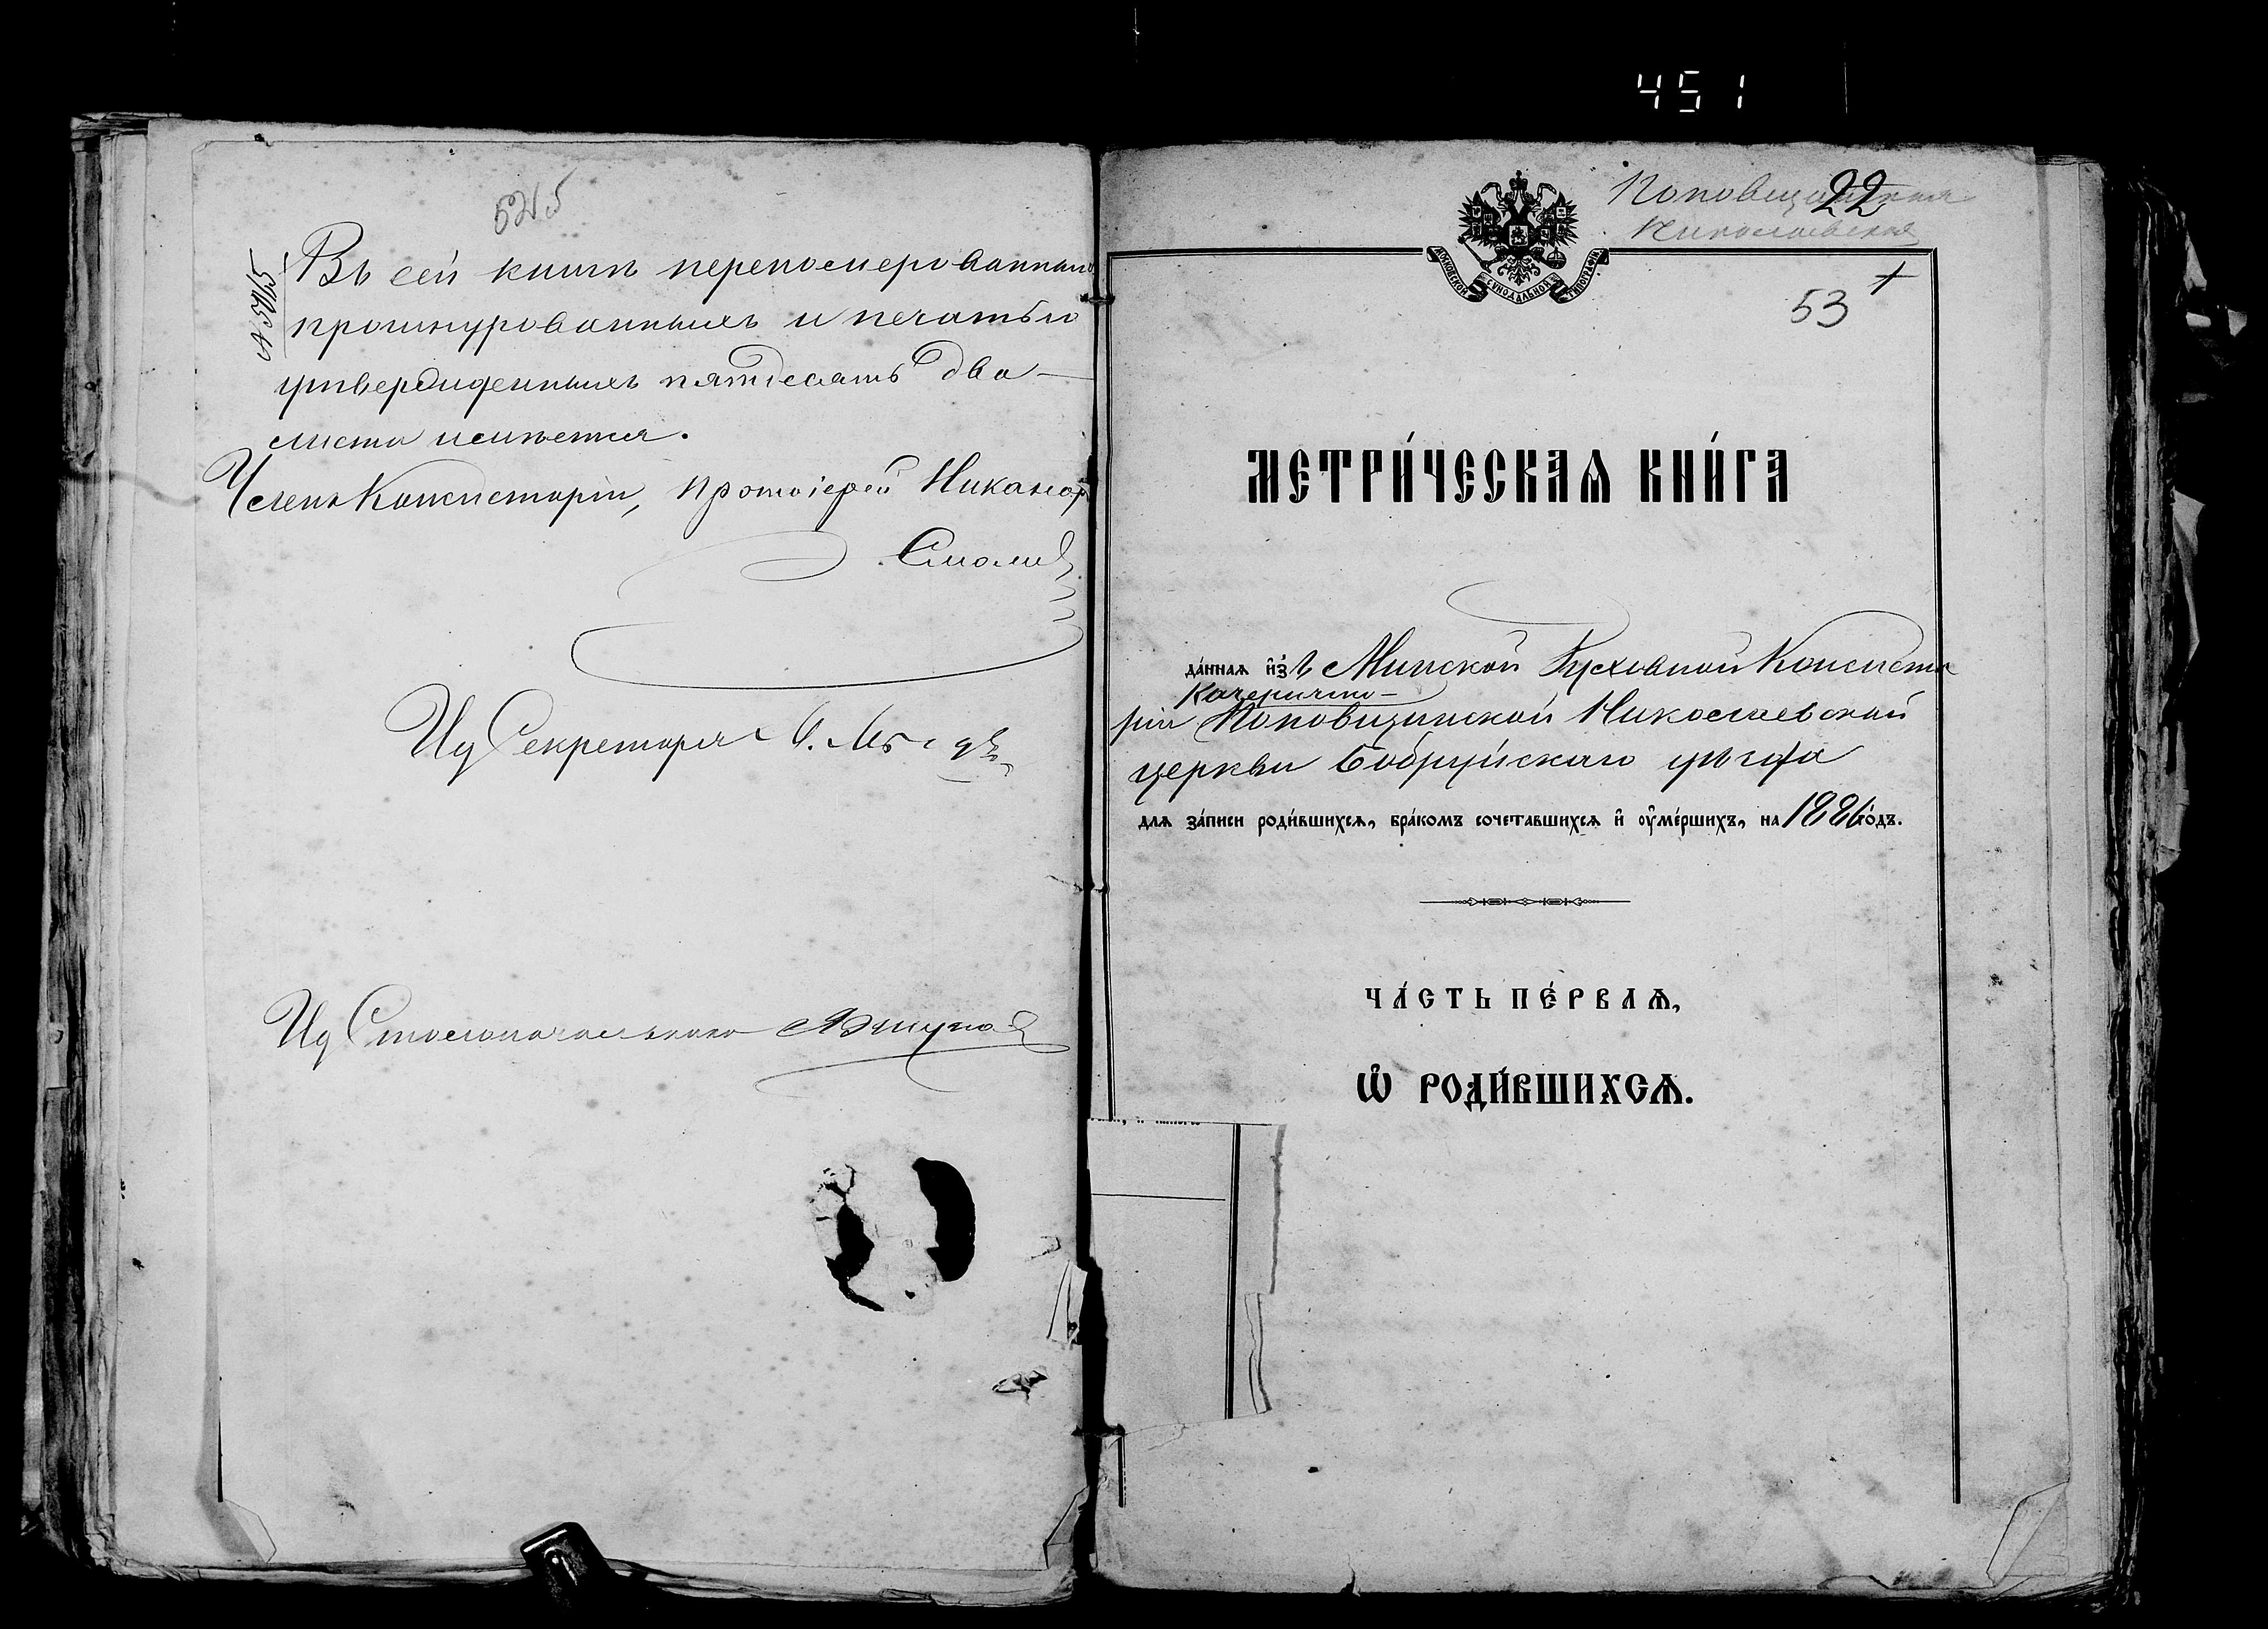 451
5245
№ 5245
Въ сей книгѣ перенумерованныхъ
прошнурованныхъ и печатью
утвержденныхъ пятдесятъ два
листа имѣется.
Членъ Консисторіи, Протоіерей Никаноръ
Смолич
Ид Секретаря
Ид Столоначальника
Поповщинская
22
Николаевская
МОСКОВСКОЙ СѴНОДАЛЬНОЙ ТИПОГРАФІИ
53
МЕТРИ́ЧЕСКАѦ КНИ́ГА
да́ннаѧ и҆зъ Минской Духовной Консисто
Качеричско-
ріи Поповщинской Николаевской
церкви Бобруйскаго уѣзда
длѧ за́писи роди́вшихсѧ, бра́комъ сочета́вшихсѧ и҆ ᲂу҆ме́ршихъ, на 1886 го́дъ.
ЧА́СТЬ ПЕ́РВАѦ,
Ѡ҆ РОДИ́ВШИХСѦ.